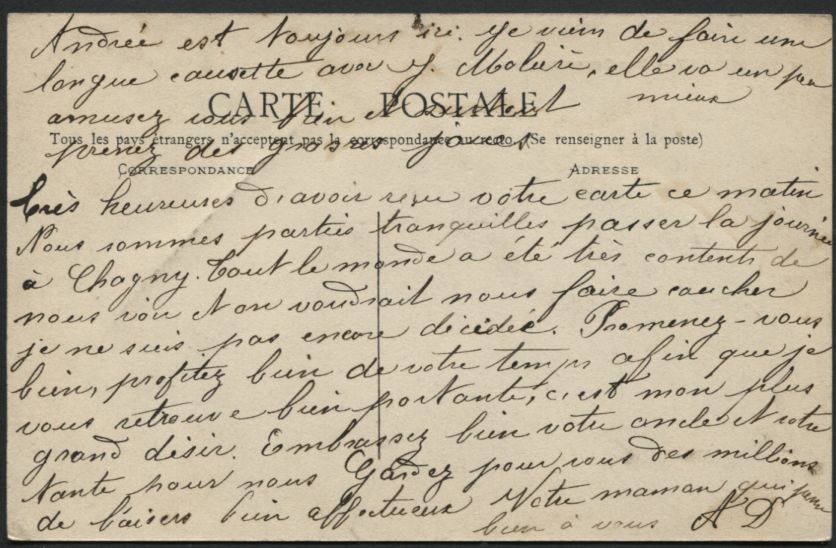 Andrée est toujours ici. Je viens de faire une
longue causette avec Y. Molière, elle va un peu
mieux
amusez vous bien et surtout
CARTE POSTALE
Tous les pays étrangers n'acceptent pas la correspondance au recto. (Se renseigner à la poste)
prenez des grosses joues
CORRESPONDANCE
ADRESSE
Très heureuses d'avoir reçu votre carte ce matin
Nous sommes parties tranquilles passer la journée
à Chagny. Tout le monde a été très contents de
nous voir et on voudrait nous faire coucher
je ne suis pas encore décidée. Promenez-vous
bien, profitez bien de votre temps afin que je
vous retrouve bien portante, c'est mon plus
grand désir. Embrassez bien votre oncle et votre
tante pour nous Gardez pour vous des millions
de baisers bien affectueux Votre maman qui pense
bien à vous AD